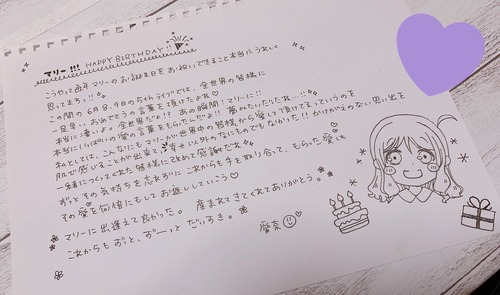 マリー!!! HAPPY BIRTHDAY
こうやって毎年マリーのお誕生日をお祝いできること本当にうれしく
思ってまるっ!!
この間の6月8.9日の5thライブでは、全世界の皆様に
一足早いおめでとうの言葉を頂けたよね♡
本当に凄いよ。全世界だよ!? あの瞬間!マリーに!!
本当にいっぱいの愛の言葉をもらったんだよ!!夢みたいだったね…!!
私としては、こんなにもマリーが世界中の皆様から愛して頂けてるっていうのを
肌で感じることが出来て、幸せ以外のなにものでもなかった!!かけがえのない思い出を
一緒につくってくれた皆様にとても感謝だネ
ずっとその気持ちを忘れずにこれからも手を取り合って、もらった愛を
その愛を何倍にもしてお返ししていこう♡
マリーに出逢えて良かった。産まれてきてくれてありがとう。
これからもずっと、ずーっとだいすき。
愛奈